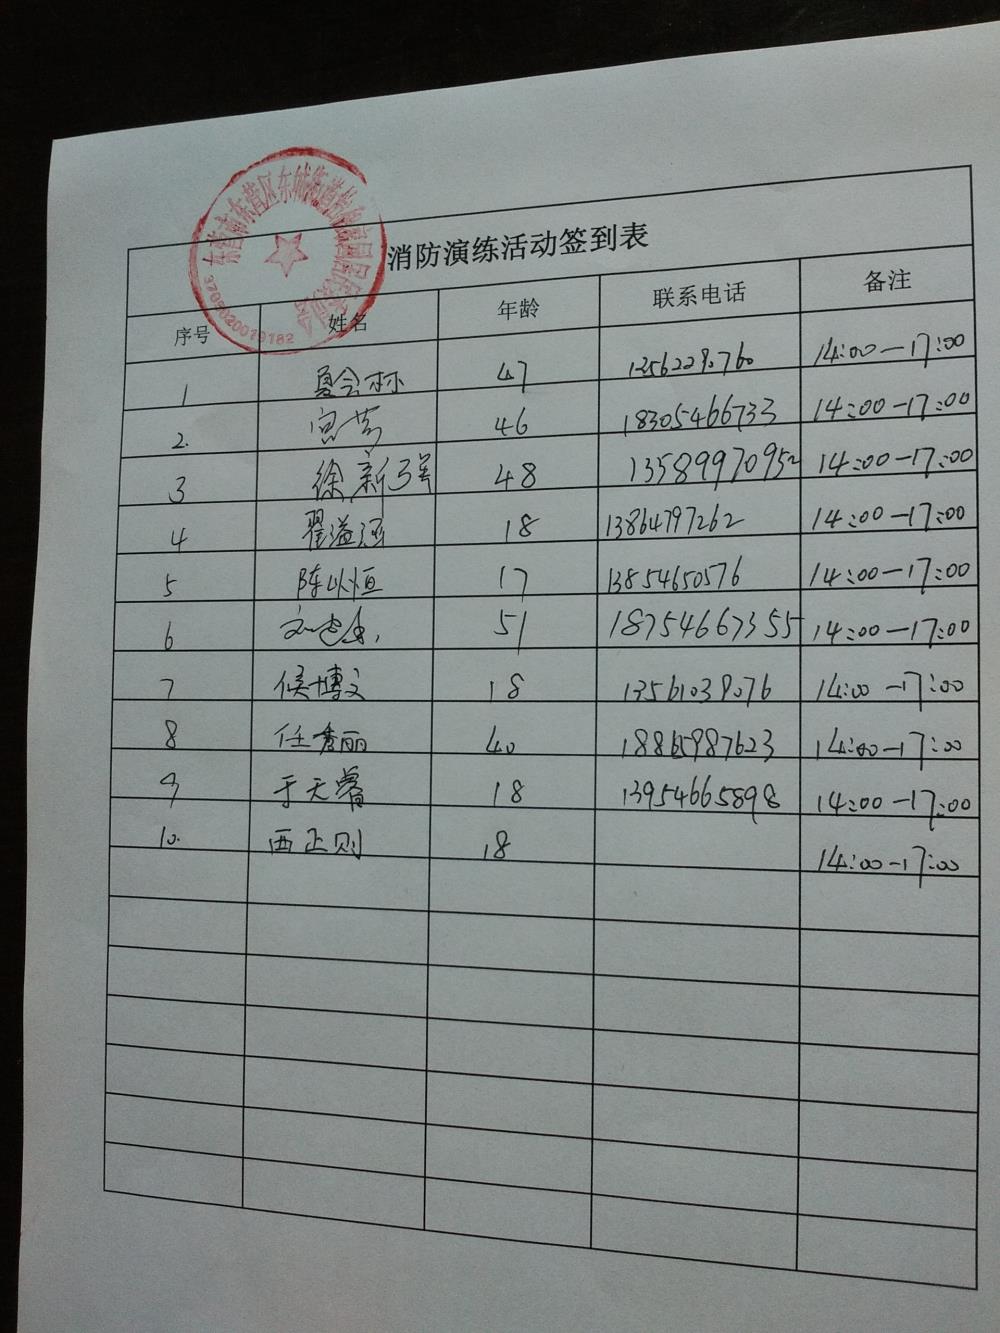 消防演练活动签到表
序号 姓名 年龄 联系电话 备注
1 夏会林 47 14:00-17:00
2. 宫芳 46 18305466733 14:00-17:00
3 徐新强 48 13589970952 14:00-17:00
4 翟溢涵 18 13864797262 14:00-17:00
5 陈以恒 17 13854650576 14:00-17:00
6 51 18754667355 14:00-17:00
7 侯博文 18 13561039076 14:00-17:00
8 任秀丽 40 18865987623 14:00-17:00
9 于天睿 18 13954665898 14:00-17:00
10. 西正则 18 14:00-17:00
3705020019182